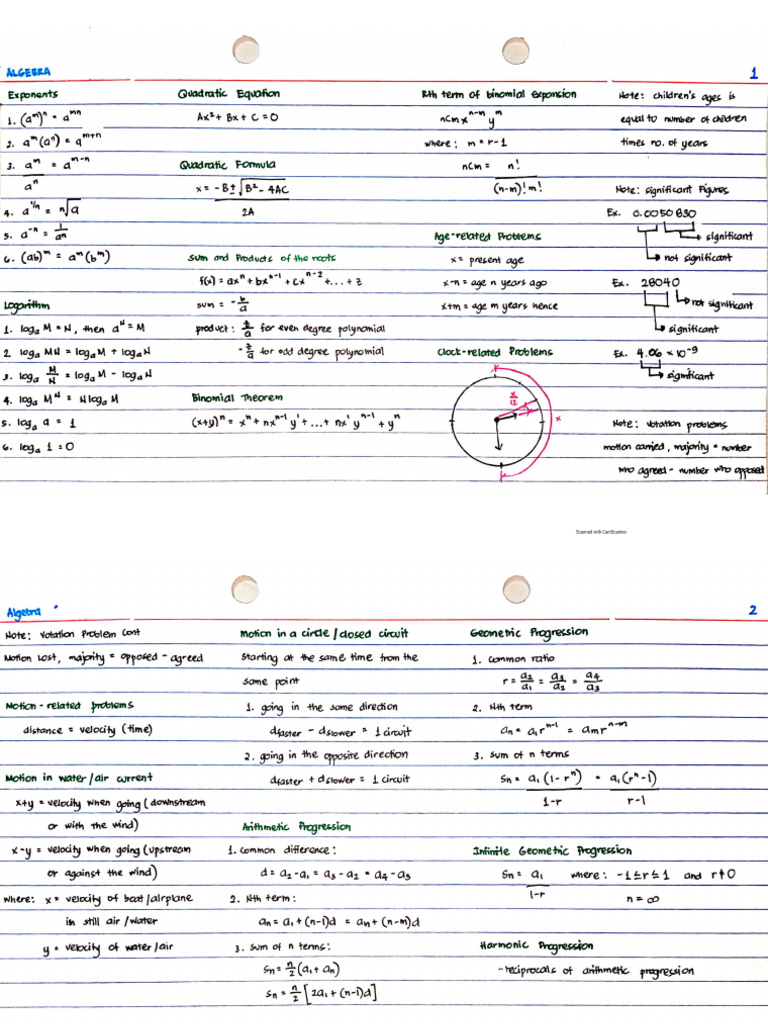 ALGEBRA
1
Exponents
1. (a^m)^n = a^mn
2. a^m (a^n) = a^m+n
3. a^m / a^n = a^m-n
4. a^1/n = n√a
5. a^-n = 1/a^n
6. (ab)^m = a^m (b^m)
Logarithm
1. log_a M = N, then a^N = M
2. log_a MN = log_a M + log_a N
3. log_a M/N = log_a M - log_a N
4. log_a M^N = N log_a M
5. log_a a = 1
6. log_a 1 = 0
Quadratic Equation
Ax² + Bx + C = 0
Quadratic Formula
x = -B ± √B² - 4AC / 2A
Sum and Products of the roots
f(x) = ax^n + bx^n-1 + cx^n-2 + ... + z
sum = - b/a
product: z/a for even degree polynomial
- z/a for odd degree polynomial
Binomial Theorem
(x+y)^n = x^n + nx^n-1 y' + ... + nx' y^n-1 + y^n
Rth term of binomial expansion
nCm x^n-m y^m
where: m = r-1
nCm = n! / (n-m)! m!
Age-related Problems
x = present age
x-n = age n years ago
x+m = age m years hence
Clock-related Problems
x/12
x
Note: children's ages is
equal to number of children
times no. of years
Note: significant Figures
Ex. 0.0050830
significant
not significant
Ex. 28040
not significant
significant
Ex. 4.06 x 10^-9
significant
Note: Votation problems
motion carried, majority = number
who agreed - number who opposed
Scanned with CamScanner
Algebra
2
Note: Votation Problem Cont
Motion Lost, majority = opposed - agreed
Motion - related problems
distance = velocity (time)
Motion in water/air current
x+y = velocity when going (downstream
or with the wind)
x-y = velocity when going (upstream
or against the wind)
where: x = velocity of boat/airplane
in still air/water
y = velocity of water/air
Motion in a circle/closed circuit
Starting at the same time from the
same point
1. going in the same direction
dfaster - dslower = 1 circuit
2. going in the opposite direction
dfaster + dslower = 1 circuit
Arithmetic Progression
1. Common difference:
d = a2 - a1 = a3 - a2 = a4 - a3
2. Nth term:
an = a1 + (n-1)d = am + (n-m)d
3. sum of n terms:
Sn = n/2 (a1 + an)
Sn = n/2 [2a1 + (n-1)d]
Geometric Progression
1. Common ratio
r = a2/a1 = a3/a2 = a4/a3
2. Nth term
an = a1 r^n-1 = am r^n-m
3. sum of n terms
Sn = a1 (1-r^n) / 1-r = a1 (r^n-1) / r-1
Infinite Geometric Progression
Sn = a1 / 1-r where: -1≤r≤1 and r≠0
n = ∞
Harmonic Progression
-reciprocals of arithmetic progression